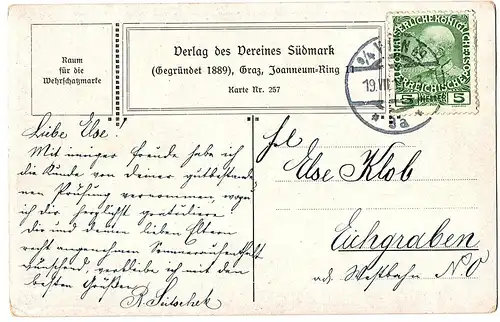 Raum
für die
Wehrschatzmarke
Verlag des Vereines Südmark
(Gegründet 1889), Graz, Joanneum-Ring 11
Karte Nr. 257
5 HELLER 5
WIEN
19.VII
* 3a *
Liebe Else!
Mit inniger Freude habe ich
die Kunde von deiner gutbestande-
nen Prüfung vernommen, wozu
ich dir herzlichst gratuliere
Dir und deinen lieben Eltern
recht angenehmen Sommeraufenthalt
wünschend, verbleibe ich mit den
besten Grüßen
Frl
Else Klob
Eichgraben
a.d. Westbahn N.Ö